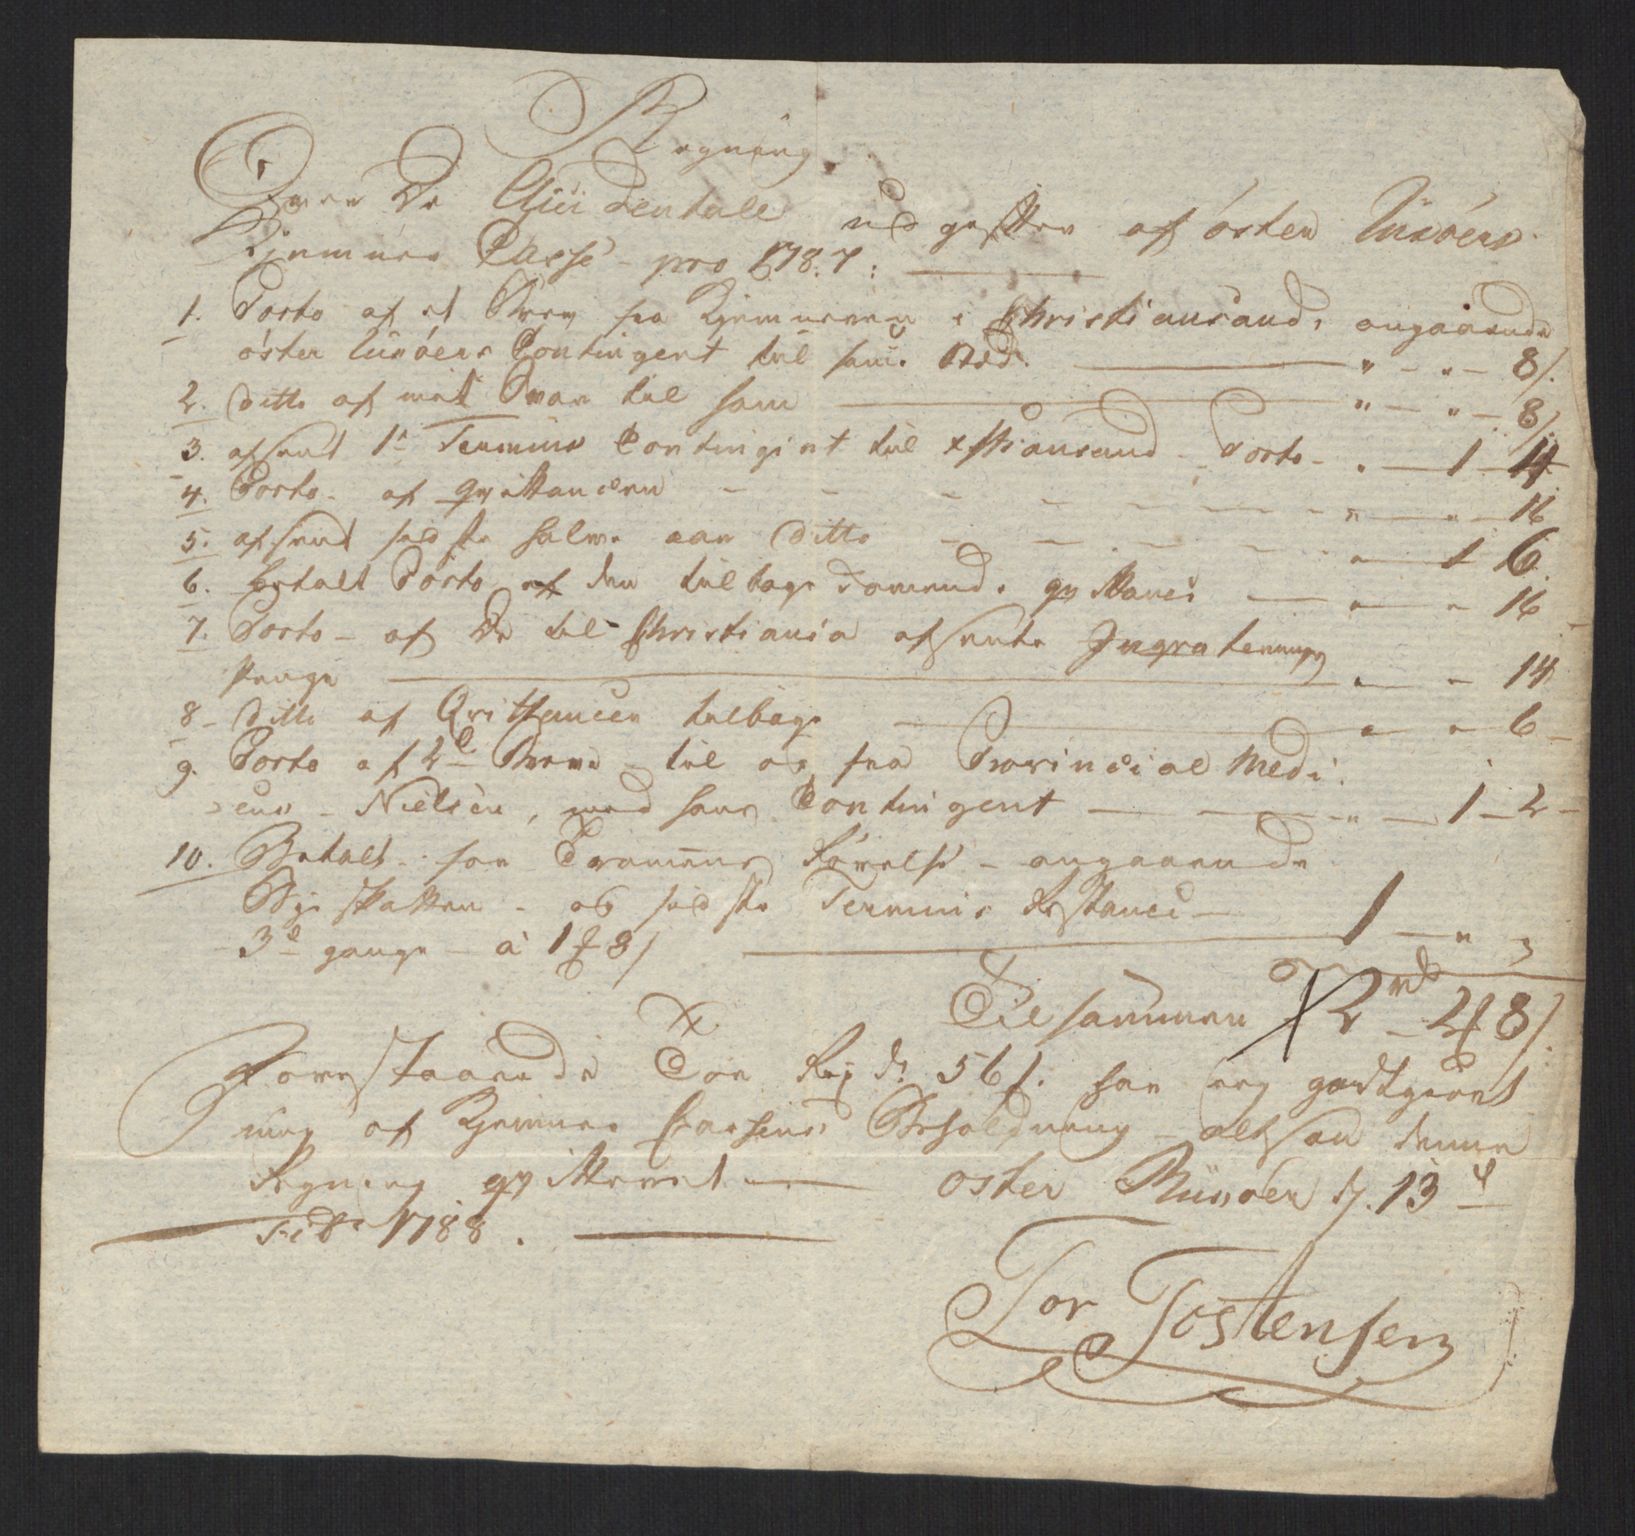 Regning
Over De Accidentale udgifter af öster Riisöers
Kjemner Casse - pro 1787:
1. Porto af et Brev fra Kjemneren i Christiansand, angaaende
öster Riisöers Contingent til samme Stæd. " - " - 8/.
2. ditto af mit Svar til ham " - " - 8/.
3. afsendt 1te Termins Contingent til Xstiansand - Porto - . - 1 - 4
4. Porto - af qvittancen " - " - 16
5. afsendt sidste halve aar ditto " - 1 6
6. betalt Porto af den tilbage komende qvittance " - " 16
7. Porto - af De til Christiania afsendte
Penge " - 14
8 - ditto af Qvittancen tilbage " " 6 -
9. Porto af 2de Breve - til og fra Provincial Medi:
cus - Nielsen, med hans Contingent " - 1 - 2 -
10. Betalt for Trommens Rörelse - angaaende
Bye skatten - og sidste Termins Restance -
3de gange - à 1 8/ 1 - " 3
Tilsammen 2 rd - 4 8/.
Forestaaende Toe Rixdr 56 s. har jeg godtgiort
mig af Kjemner Cassens Beholdning - altsaa denne
Regning qvitteret öster Riisöer d. 13de
1788.
Tor Tostensen